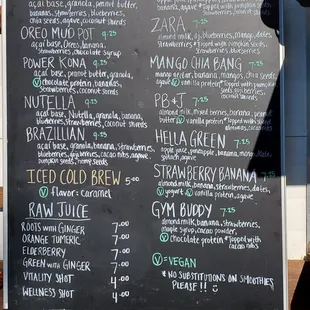 açaí base, granola, peanut butter,
bananas, strawberries, blueberries,
chia seeds, agave, coconut shreds
OREO MUD POT 9.25
açaí base, Oreos, banana,
strawberries, chocolate syrup
POWER KONA 9.25
açaí base, peanut butter, granola,
Ⓥ chocolate protein, bananas,
strawberries, coconut shreds
NUTELLA 9.25
açaí base, Nutella, granola, banana,
blueberries, strawberries, coconut shreds
BRAZILLIAN 9.25
açaí base, granola, bananas, strawberries,
blueberries, cacao nibs, agave,
pumpkin seeds, hemp seeds
ICED COLD BREW 5.00
Ⓥ Flavor: caramel
RAW JUICE
ROOTS WITH GINGER 7.00
ORANGE TUMERIC 7.00
ELDERBERRY 7.00
GREEN WITH GINGER 7.00
VITALITY SHOT 4.00
WELLNESS SHOT 4.00
ZARA 7.25
Almond milk, bananas, mango, dates,
strawberries *topped with pumpkin seeds,
MANGO CHIA BANG 7.25
mango nectar, bananas, mangos, chia seeds,
agave Ⓥ vanilla protein *topped with
coconut shreds
PB+J 7.25
almond milk, mixed berries, bananas, peanut
butter Ⓥ vanilla protein
HELLA GREEN 7.25
apple juice, pineapple, banana, mango, kale,
spinach, agave
STRAWBERRY BANANA 7.25
almond milk, bananas, strawberries, dates,
Ⓥ yogurt Ⓥ vanilla protein, agave
GYM BUDDY 7.25
almond milk, banana, strawberries,
maple syrup, cacao powder,
Ⓥ chocolate protein *topped with
cacao nibs
Ⓥ = VEGAN
* NO SUBSTITUTIONS ON SMOOTHIES
PLEASE!!